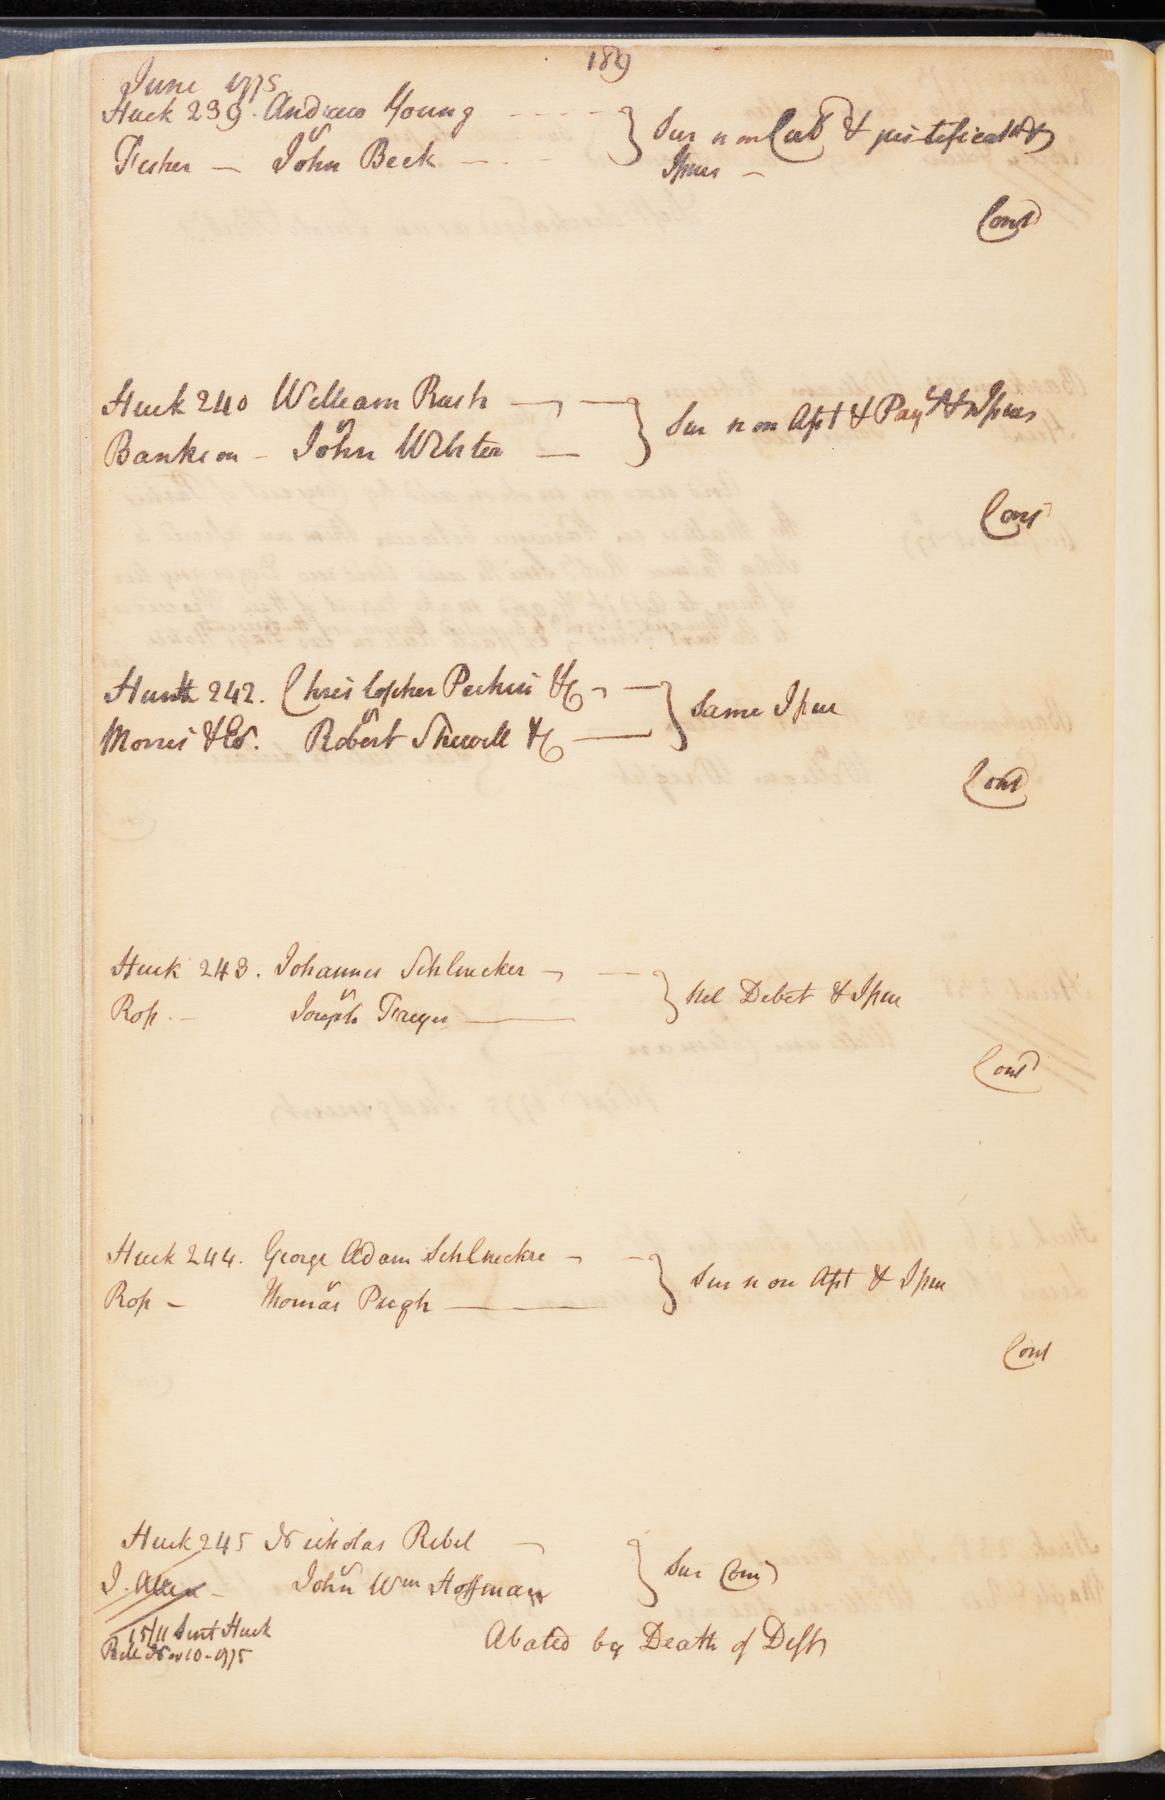 189
June 1775
Huck 239. Andrew Young
v
Fisher — John Beck —
Sur non Cul & justificat &
Issues —
Cont
Huck 240 William Rush
v
Bankson – John Webster —
Sur non Asst & Paymt & Issues
Cont
Hunt 242. Christopher Perkins &c
v
Morris &
Robert Shewell &c
Same Issue
Cont
Huck 243. Johannes Schlneker
v
Ross. – Joseph
Nil Debet & Issue
Cont
Huck 244. George Adam Schlneckre
v
Ross – Thomas Pugh
Sur non Asst & Issue
Cont
Huck 245 Nicholas Ribel
v
J. Allen – John Wm Hoffman
Sur
15/11 Huck
Nov 10–1775
Abated by Death of Deft